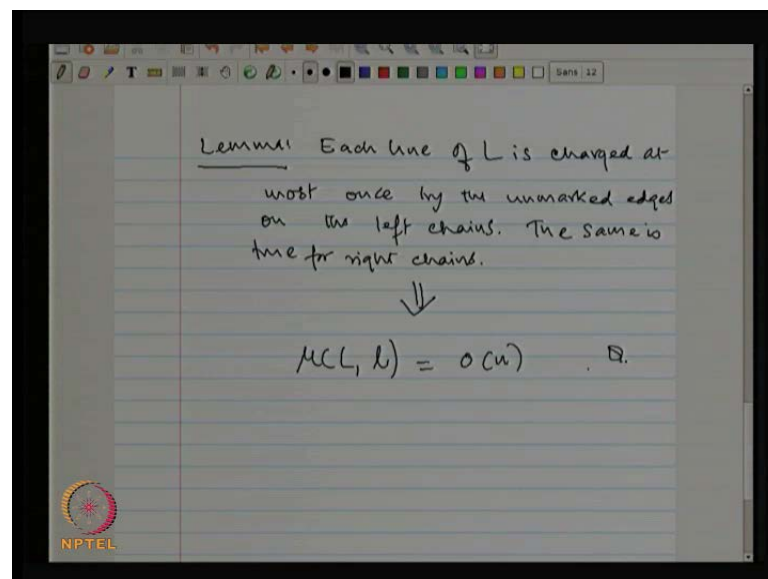 T
Sans 12
Lemma: Each line of L is charged at
most once by the unmarked edges
on the left chains. The same is
true for right chains.
⇓
μ(L, l) = O(n) . ⊠.
NPTEL